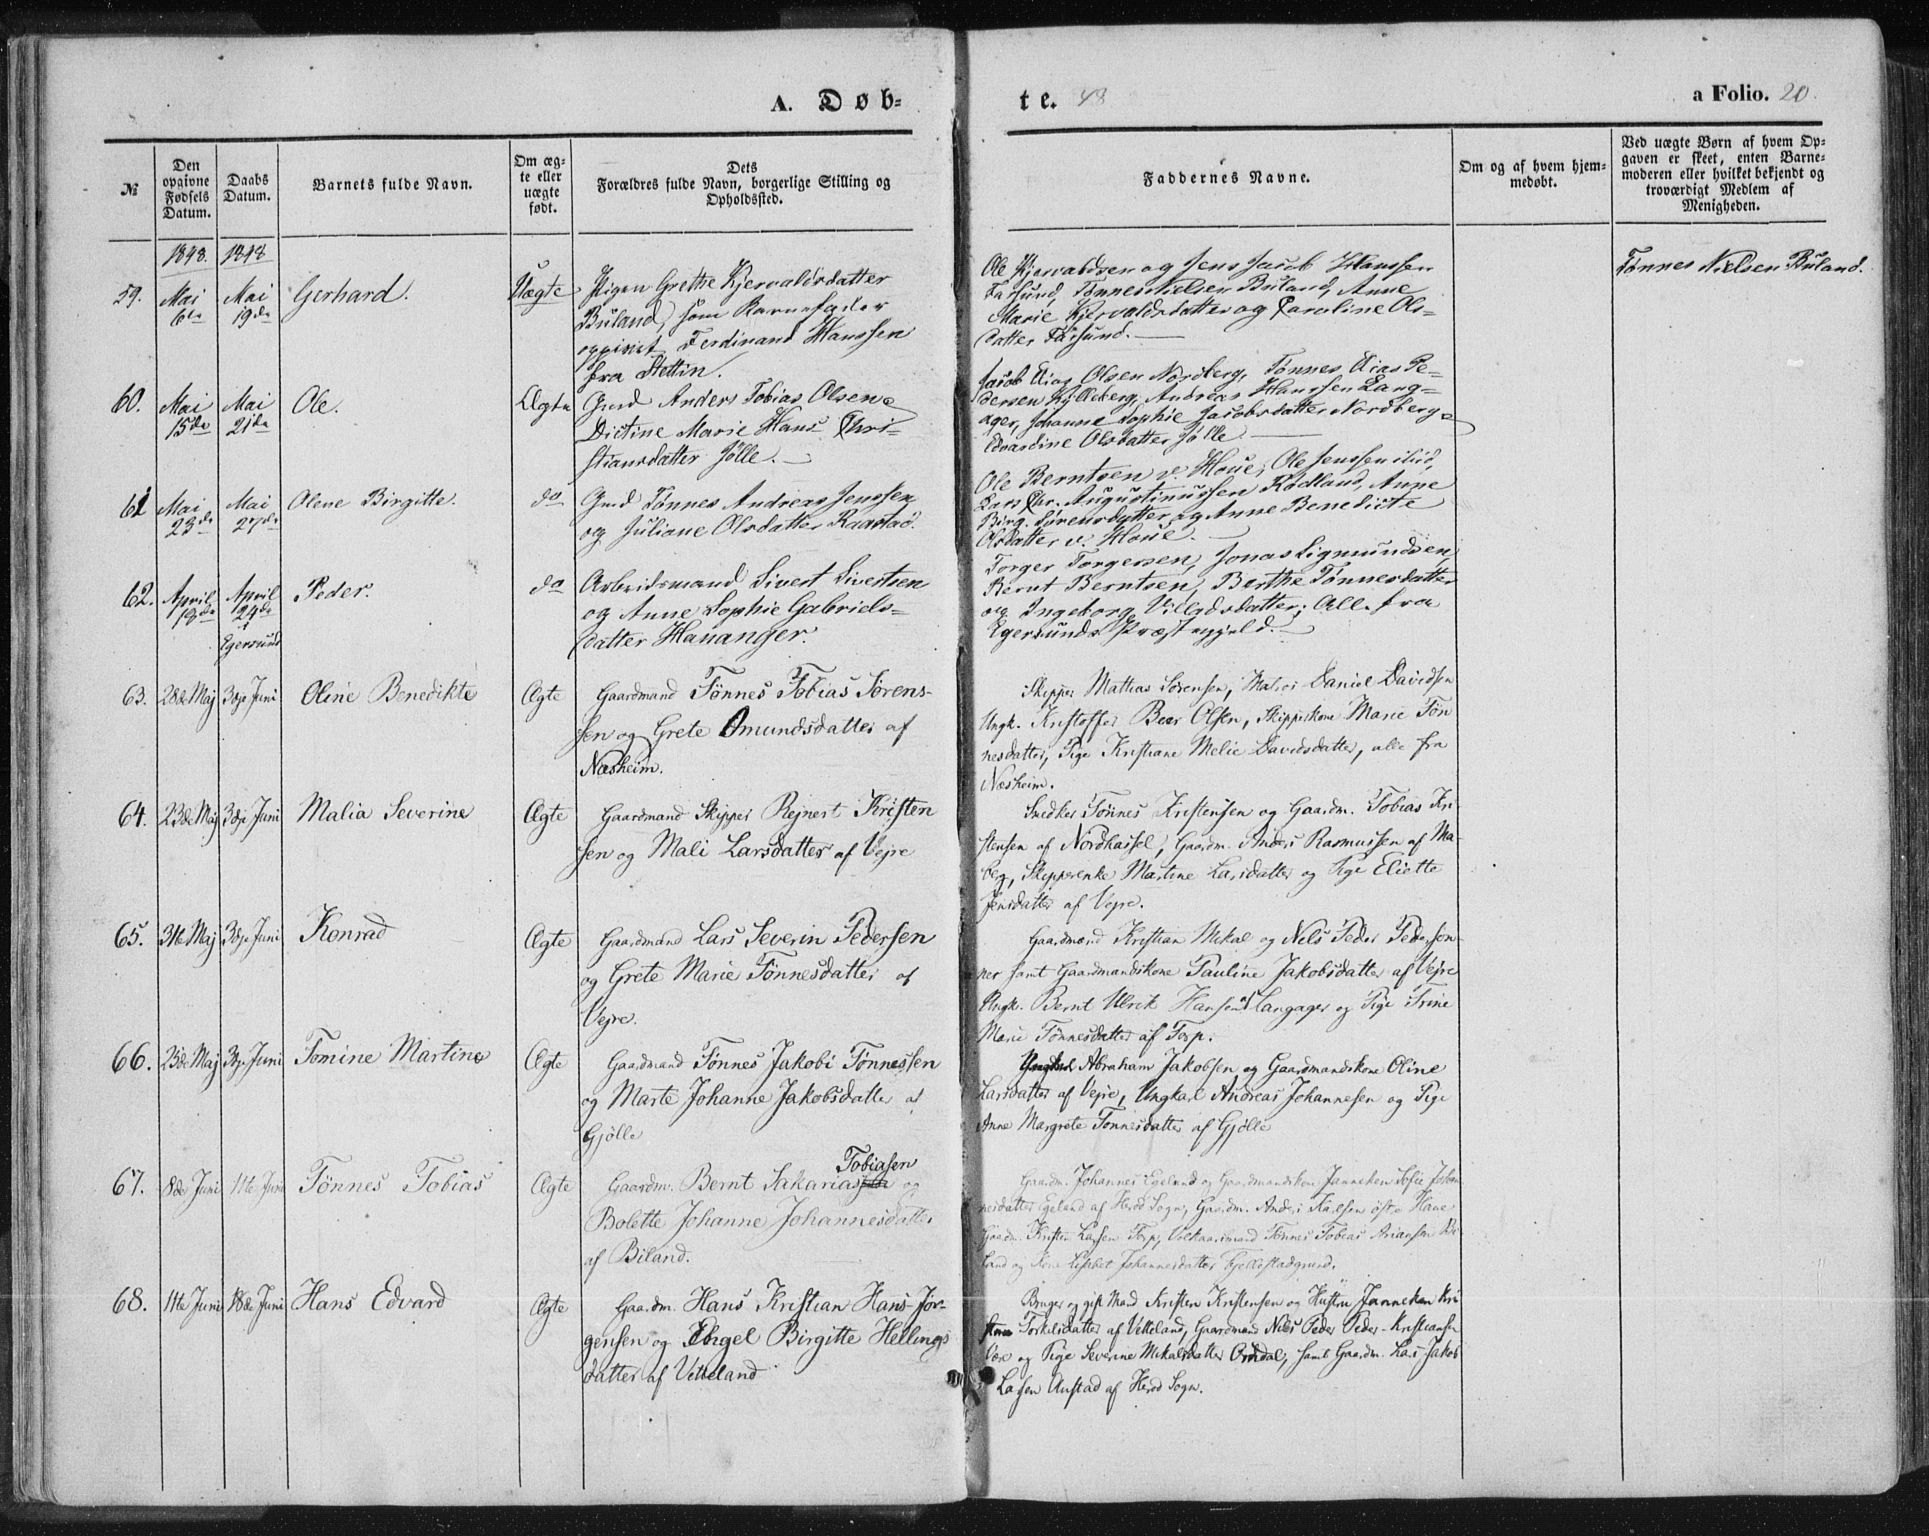 A. Døb=
te. 48
a Folio. 20.
№
Den opgivne Fødsels Datum.
Daabs Datum.
Barnets fulde Navn.
Om ægte eller uægte født.
Dets
Forældres fulde Navn, borgerlige Stilling og
Opholdssted.
Faddernes Navne.
Om og af hvem hjem-
medøbt.
Ved uægte Børn af hvem Op-
gaven er skeet, enten Barne-
moderen eller hvilket bekjendt og
troværdigt Medlem af
Menigheden.
1848. 1848
59. Mai 6te Mai 19de Gerhard. Uægte
Pigen Grethe Kjervaldsdatter
Büland, som Barnefader
opgivet Ferdinand Hanssen
fra Stettin.
Ole Kjervaldsen og Jens Jacob Hanssen
Farsund, Tønnes Nielsen Büland, Anne
Marie Kjervaldsdatter og Caroline Ols-
datter Farsund.
Tønnes Nielsen Büland.
60. Mai 15de Mai 21de Ole. Ægte
Grmd Anders Tobias Olsen
Dictine Marie Hans Chri-
stiansdatter Jølle.
Jacob Olsen Nordberg, Tønnes Pe-
dersen, Andreas Hanssen Lang-
ager, Johanne Sophie Jacobsdatter Nordberg
Edvardine Olsdatter Jølle
61 Mai 23de Mai 27de Olene Birgitte. do
Grmd Tønnes Andreas Jenssen
og Juliane Olsdatter Raastad.
Ole Berntsen v. Houe, Ole Jenssen ibid,
Lars Chr. Augustinussen Rødland, Anne
Birg. Sørensdatter og Anne Benedicte
Olsdatter v. Houe.
62. April 19de April 24de i Egersund Peder. do
Arbeidsmand Sivert Sivertsen
og Anne Sophie Gabriels-
datter Hauanger.
Torger Torgersen, Jonas Sigmundsen
Bernt Berntsen, Berthe Tønnesdatter
og Ingeborg Villadsdatter; Alle fra
Egersunds Præstegjeld.
63. 28de Maj 3dje Juni Oline Benedikte Ægte
Gaardmand Tønnes Tobias Sørens-
sen og Grete Omundsdatter af
Næsheim.
Skipper Mathias Sørensen, Matros Daniel Davidsen
Ungk. Kristoffer Beer Olsen, Skipperkone Marie Tøn
nesdatter, Pige Kristiane Melie Davidsdatter, alle fra
Næsheim.
64. 23de Maj 3dje Juni Malia Severine Ægte
Gaardmand Skipper Rejnert Kristen
sen og Mali Larsdatter af Vejre
Snedker Tønnes Kristensen og Gaardm. Tobias Kri
stensen af Nordhassel, Gaardm. Anders Rasmussen af Ma-
berg, Skipperenke Martine Larsdatter og Pige Eliette
Jensdatter af Vejre.
65. 31te Maj 3dje Juni Konrad Ægte
Gaardmand Lars Severin Pedersen
og Grete Marie Tønnesdatter af
Vejre.
Gaardmænd Kristian Mikal og Nels Peder Pedersøn
ner samt Gaardmandskone Pauline Jakobsdatter af Vejre
Ungk. Bernt Ulrik Hansen af Langager og Pige Trine
Marie Tønnesdatter af Torp.
66. 23de Maj 3dje Juni Tomine Martine Ægte
Gaardmand Tønnes Jakobi Tønnessen
og Marte Johanne Jakobsdatter af
Gjølle
Ungkarl Abraham Jakobsen og Gaardmandskone Oline
Larsdatter af Vejre, Ungkarl Andreas Johannesen og Pige
Anne Margrete Tønnesdatter af Gjølle
67. 8de Juni 11te Juni Tønnes Tobias Ægte
Tobiasen
Gaardm. Bernt Sakarias og
Bolette Johanne Johannesdatter
af Biland.
Gaardm. Johannes Egeland og Gaardmandskone Janneken Sofie Johan
nesdatter Egeland af Herød Sogn, Gaardm. Anders Karlsen østre Haue
Gaardm. Kristen Larsen Torp, Vilkaarsmand Tønnes Tobias Ariansen Bi
land og Kone Lisabet Johannesdatter Gjellestadgrund.
68. 11te Juni 18de Juni Hans Edvard Ægte
Gaardm. Hans Kristian Hans-Jør-
gensen og Engel Birgitte Hellings
datter af Vetteland
Bruger og gift Mand Kristen Kristensen og Hustru Janneken Kri
stine Torkelsdatter af Vetteland, Gaardmand Nils Peder Peder-Kristiansen
og Pige Severine Mikalsdatter Omdal, samt Gaardm. Lars Jakob
Larsen Austad af Herod Sogn.